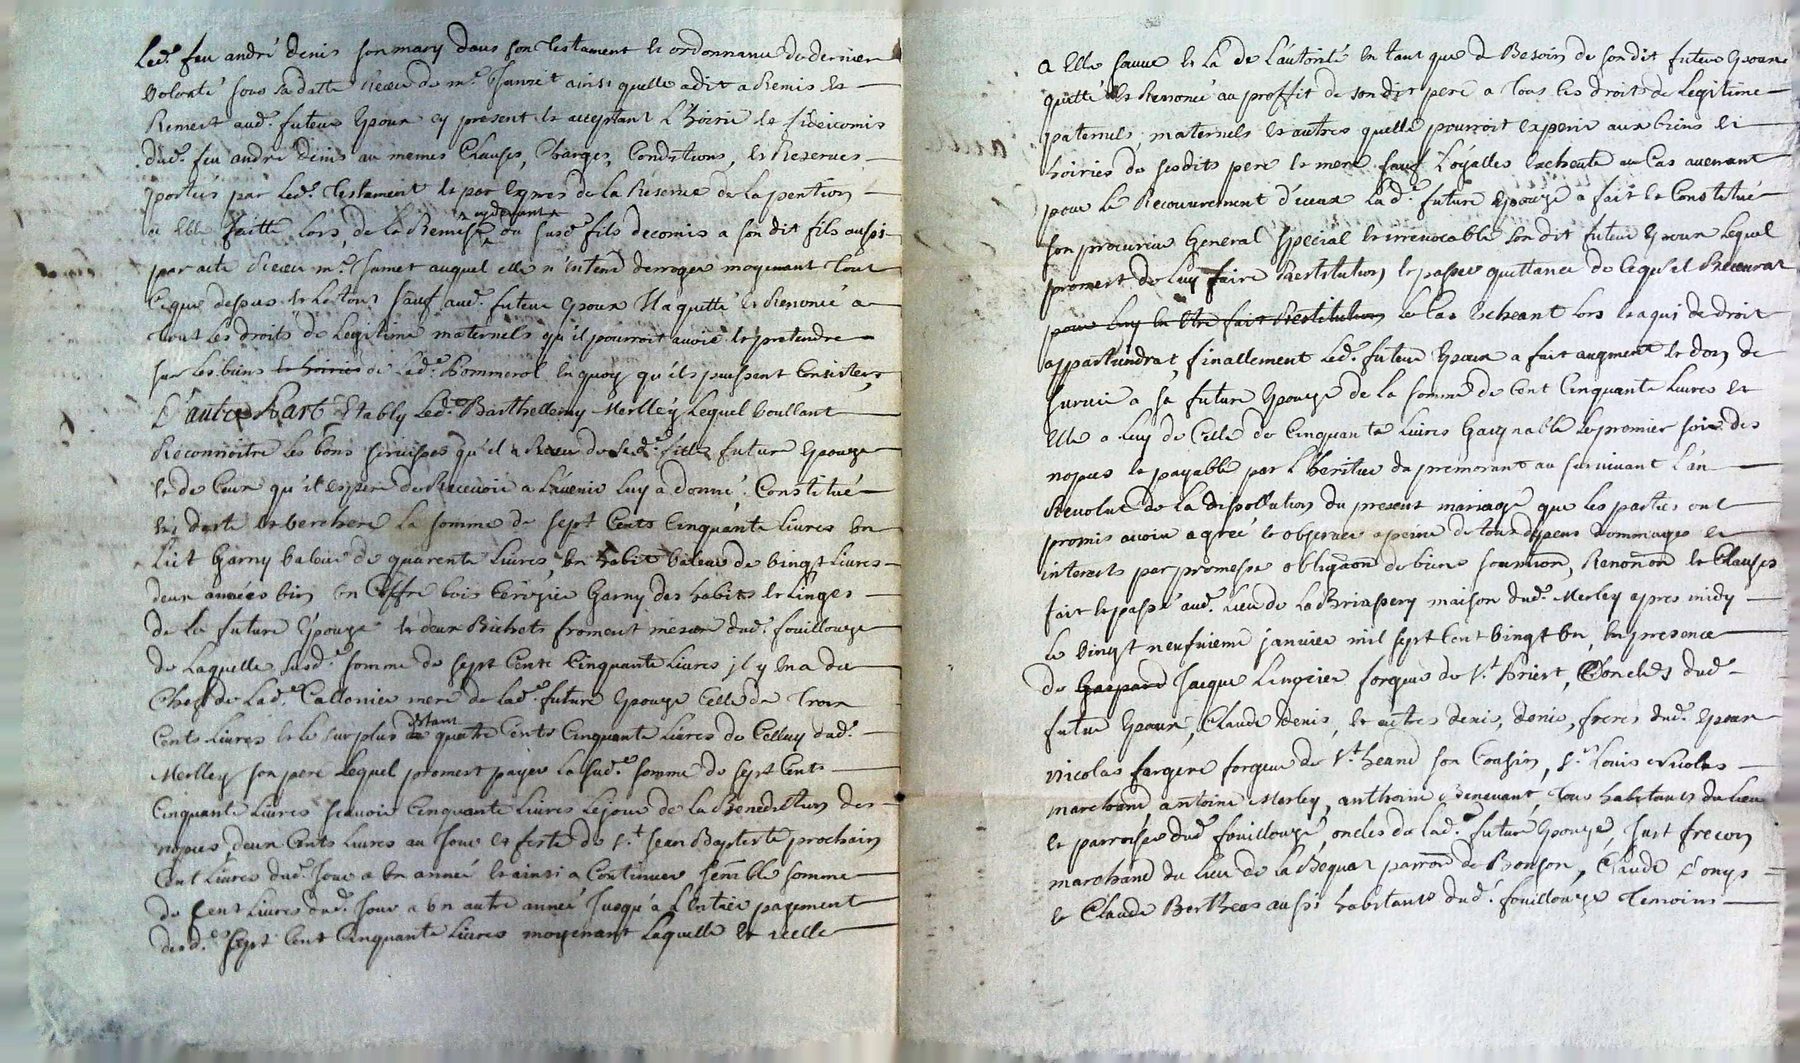 Led. feu andré denis son mary dans son testament et ordonnance de derniere
volonté sous sa datte receu de me. ainsi quelle a dit a Remis et
Remest aud. futeur Epoux cy present et acceptant L'hoirie et fideicomis
dud. feu andré denis au memes Clauses, Charges, Conditions, et Reserves
portés par Led. testament et par expres de la Reserve de la pention
a Elle faitte lors de la Remise cydevant du susd. fils decomis a son dit fils aussi
par acte Receu me. Jamet auquel elle n'intend derroger moyenant tout
Ceque dessus et Le tout sauf aud. futeur Epoux Il a quitté et Renoncé a
tout Les droits de Legitime maternels qu'il pourroit avoir et pretendre
sur Les biens et hoiries de Lad. Pommerol en quoy qu'ils puissent Consister,
D'autre Part Etably Led. Barthellemy Merlley Lequel voullant
Reconnoitre Les bons services qu'il a Receu de sad. fille future Epouze
et de Ceux qu'il espere de Recevoir a L'avenir Luy a donné, Constitué
en dotte et verchere la somme de sept Cents Cinquante Livres un
Lict Garny valeur de quarente Livres, un habit valeur de vingt Livres
deux années bien un Coffre bois Cerizier Garny des habits et Linges
de la future Epouze et deux Bichets froment mesure dud. fouillouze
de Laquelle susd. somme de sept Cents Cinquante Livres il y en a du
Chef de Lad. Callonier mere de lad. future Epouze Celle de trois
Cents Livres et le surplus estant de quatre Cents Cinquante Livres de Celluy dud.
Merlley son pere Lequel promest payer La sud. somme de sept Cents
Cinquante Livres scavoir Cinquante Livres Le jour de la Benediction des
nopces deux Cents Livres au jour et feste de St. Jean Baptiste prochain
Cent Livres dud. jour a un année et ainsi a Continuer semble somme
de Cent Livres dud. jour a un autre année Jusqu'a L'entier payement
desd.es sept Cent Cinquante Livres moyenant Laquelle et icelle
a Elle sauve et La de L'autorité en tant que de Besoin de son dit futeur Epoux
quitté et Renoncé au proffit de son dit pere a tous Les droits de Legitime
paternels, maternels et autres quelle pourroit experir aux biens et
hoiries de sesdits pere et mere sauf Loyalles Echeute au Cas avenant
pour Le Recouvrement d'iceux Lad. future Epouze a fait et Constitué
son procureur General Special et irrevocable son dit futeur Epoux Lequel
promest de Luy faire Restitution et passer quittance de Ce qu'il Recevrat
pour Luy en Etre fait Restitution Le Cas Echeant Lors et a qui de droit
appartiendrat, finallement Led. futeur Epoux a fait augment et don de
survie a sa future Epouze de la somme de Cent Cinquante Livres et
Elle a luy de Celle de Cinquante Livres Gaignable Le premier soir des
nopces et payable par L'heritier du premorant au survivant L'an
Revolut de la dissollution du present mariage que Les parties ont
promis avoir agreé et observer a peine de tous depens dommages et
interests par promesse obligaon de biens soumion, Renonon et Clauses
fait et passé aud. Lieu de La Briassery maison dud. Merley apres midy
Le vingt neufvieme janvier mil sept Cent vingt un, En presence
de Gaspard Jacque Lingeier forgeur de St. Priest, Oncles dud.
futeur Epoux, Claude denis, et autres denis, denis, freres dud. Epoux
nicolas fargere forgeur de St. heand son Cousin, Sr. Louis Nicolas
marchand antoine Merley, anthoine Benevant, tous habitants du Lieu
et parroisse dud. fouillouze, oncles de Lad. future Epouze, Just frecon
marchand du Lieu de La Bequat parron de Bonson, Claude Longs
et Claude Bertheas aussi habitants dud. fouillouze temoins